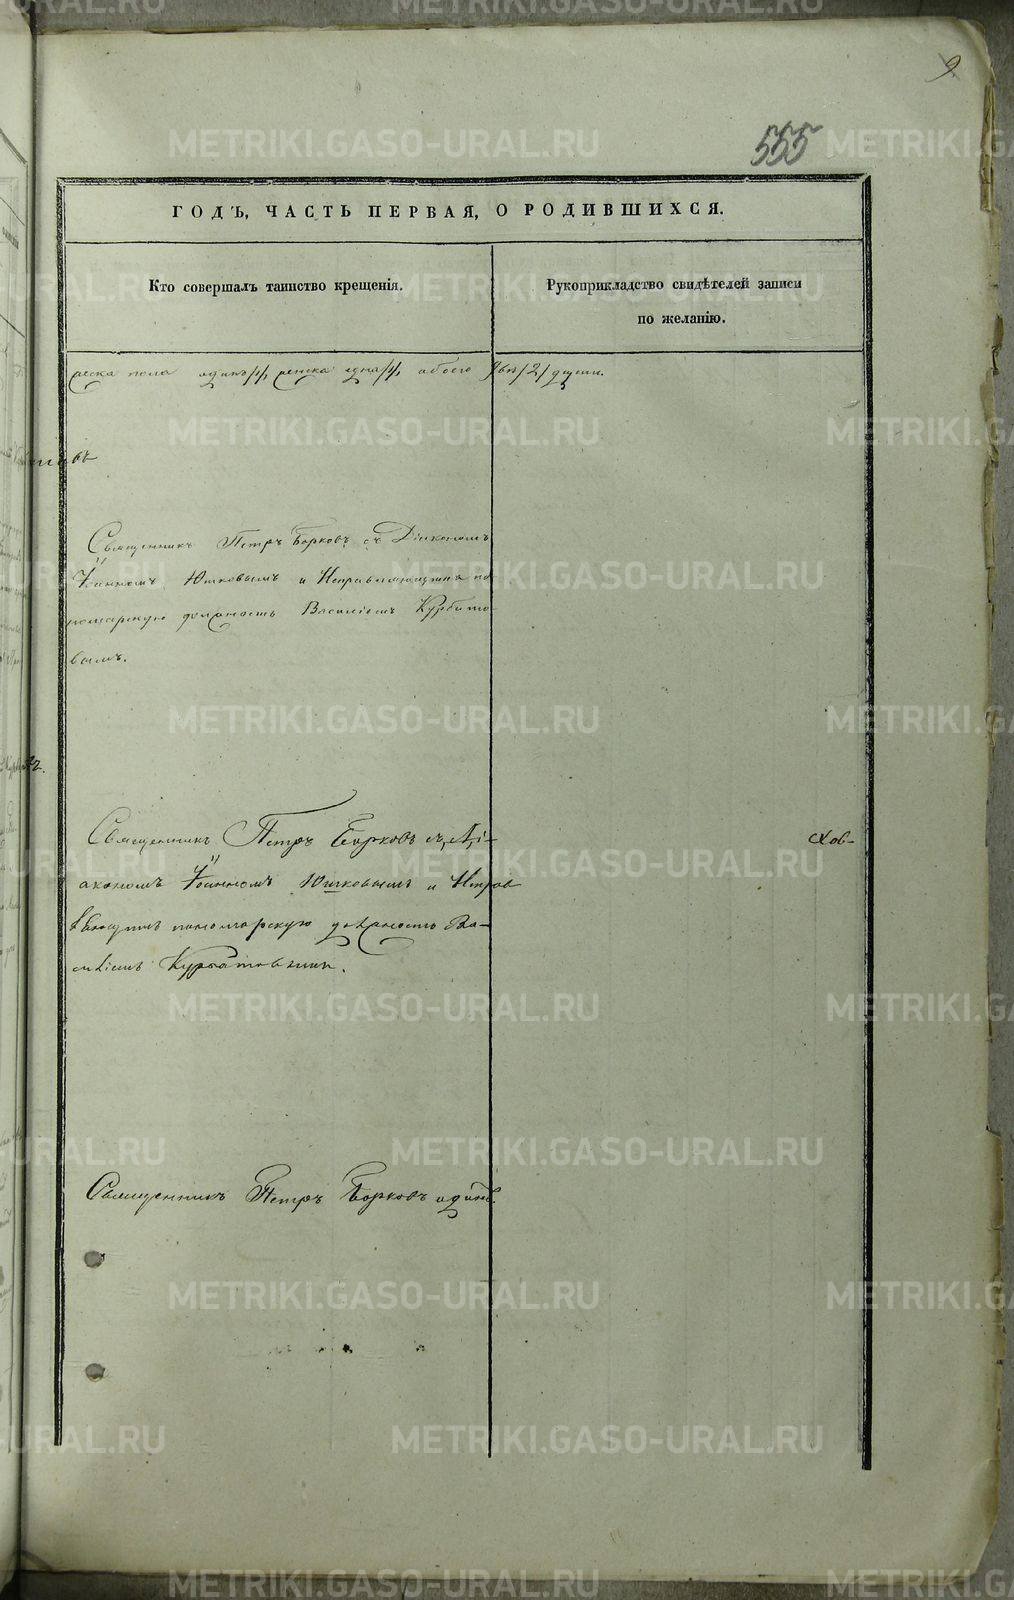 9
555
ГОДЪ, ЧАСТЬ ПЕРВАЯ, О РОДИВШИХСЯ.
Кто совершалъ таинство крещенія.
Рукоприкладство свидѣтелей записи
по желанію.
пола одинъ /1/, женска одна /1/, обоего двѣ /2/ души.
Священникъ Петръ Борковъ съ Діакономъ
Іоанномъ Юшковымъ и Исправляющимъ по
номарскую должность Василіемъ Курбато
вымъ.
Священникъ Петръ Борковъ съ Ді-
акономъ Іоанномъ Юшковымъ и Исправ
пономарскую должность Ва-
силіемъ Курбатовымъ.
Священникъ Петръ Борковъ одинъ.
METRIKI.GASO-URAL.RU